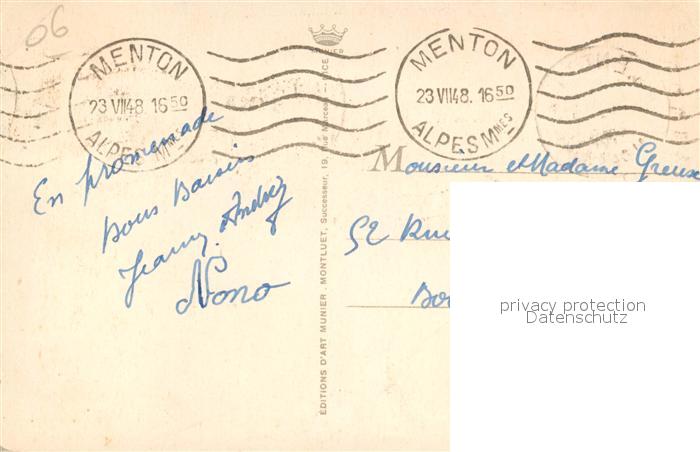 06
MENTON
23 VII 48. 16 50
ALPES Mmes
MENTON
23 VII 48. 16 50
ALPES Mmes
En promenade
Bons Baisers
Jeanny. André
Nono
ÉDITIONS D'ART MUNIER. MONTLUET, Successeur, 19, Rue
Monsieur et Madame
52 Rue
privacy protection
Datenschutz